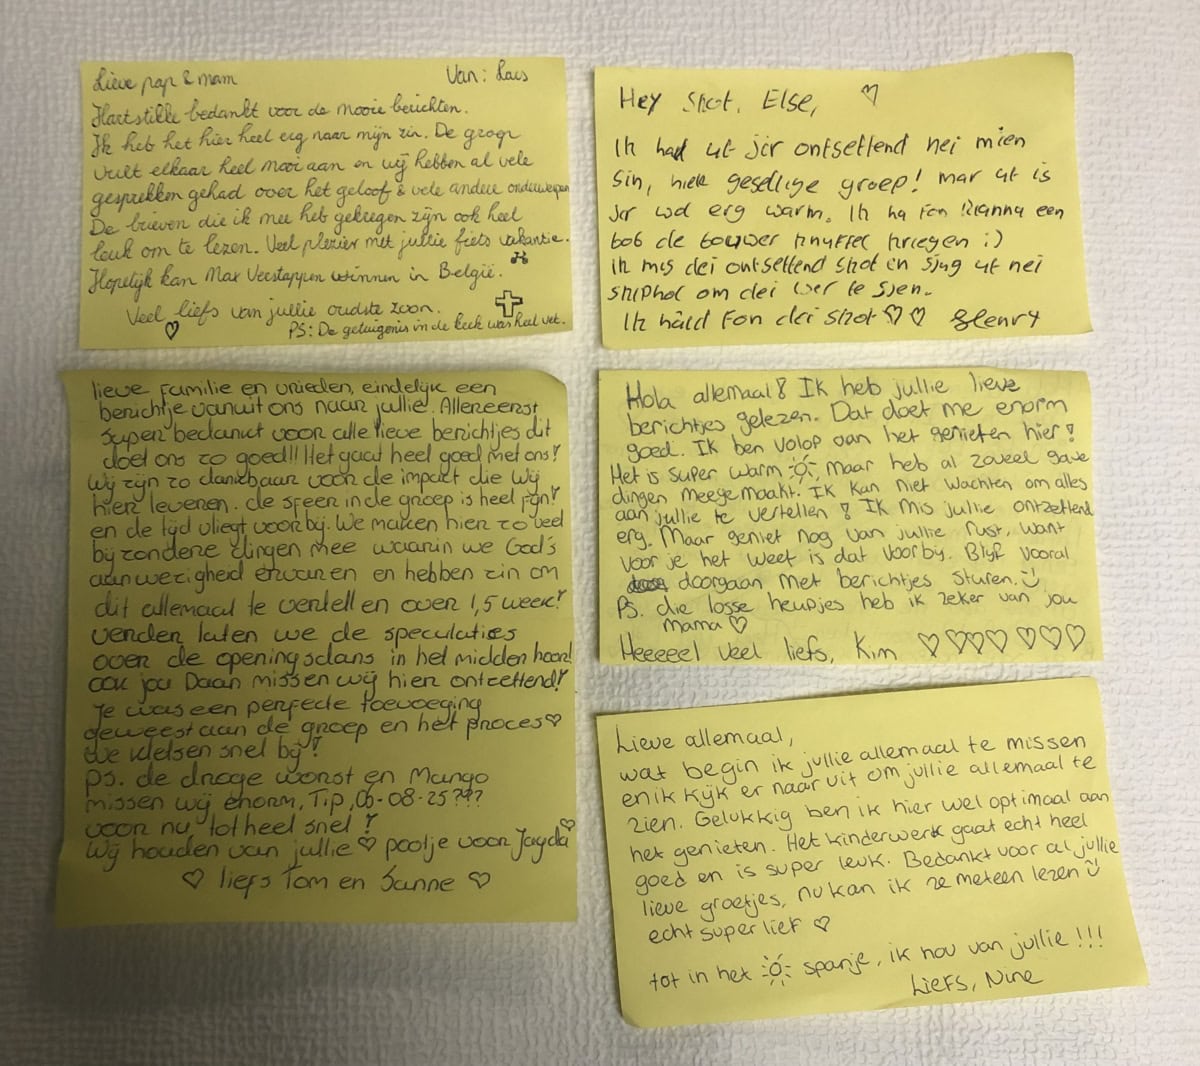 Lieve pap & mam Van: Lars
Hartstikke bedankt voor de mooie berichten.
Ik heb het hier heel erg naar mijn zin. De groep
vult elkaar heel mooi aan en wij hebben al vele
gesprekken gehad over het geloof & vele andere onderwerpen
De brieven die ik mee heb gekregen zijn ook heel
leuk om te lezen. Veel plezier met jullie fiets vakantie.
Hopelijk kan Max Verstappen winnen in België.
Veel liefs van jullie oudste zoon.
PS: De getuigenis in de kerk was heel vet.
Hey Shot, Else,
Ik had ut jir ontsettend nei mien
sin, hiele gesellige groep! mar ut is
jir wol erg warm. Ik ha fon Rianna een
bob de bouwer knuffel kriegen :)
ik mis dei ontsettend shot en sjug ut nei
skiphol om dei wer te sjen.
Ik hâld fon dei shot ♡♡ Henry
lieve familie en vrieden, eindelijk een
berichtje vanuit ons naar jullie. Allereerst
super bedankt voor alle lieve berichtjes dit
doet ons zo goed!! Het gaat heel goed met ons!
Wij zijn zo dankbaar voor de impact die wij
hier leveren. de sfeer in de groep is heel fijn!
en de tijd vliegt voorbij. We maken hier zo veel
bijzondere dingen mee waarin we God's
aanwezigheid ervaren en hebben zin om
dit allemaal te vertellen over 1,5 week!
verder laten we de speculaties
over de openingsdans in het midden hoor!
ook jou Daan missen wij hier ontzettend!
Je was een perfecte toevoeging
geweest aan de groep en het proces♡
We kletsen snel bij!
PS. de droge worst en Mango
missen wij enorm, Tip, 06-08-25???
voor nu, tot heel snel!
Wij houden van jullie ♡ pootje voor Jayda♡
♡ liefs Tom en Sanne ♡
Hola allemaal! Ik heb jullie lieve
berichtjes gelezen. Dat doet me enorm
goed. Ik ben volop aan het genieten hier!
Het is super warm, maar heb al zoveel gave
dingen meegemaakt. Ik kan niet wachten om alles
aan jullie te vertellen! Ik mis jullie ontzettend
erg. Maar geniet nog van jullie rust, want
voor je het weet is dat voorbij. Blijf vooral
doorgaan met berichtjes sturen.
Ps. die losse heupjes heb ik zeker van jou
mama ♡
Heeeeel veel liefs, Kim ♡♡♡♡ ♡♡♡
Lieve allemaal,
wat begin ik jullie allemaal te missen
en ik kijk er naar uit om jullie allemaal te
zien. Gelukkig ben ik hier wel optimaal aan
het genieten. Het kinderwerk gaat echt heel
goed en is super leuk. Bedankt voor al jullie
lieve groetjes, nu kan ik ze meteen lezen
echt super lief ♡
tot in het spanje, ik hou van jullie!!!
Liefs, Nine